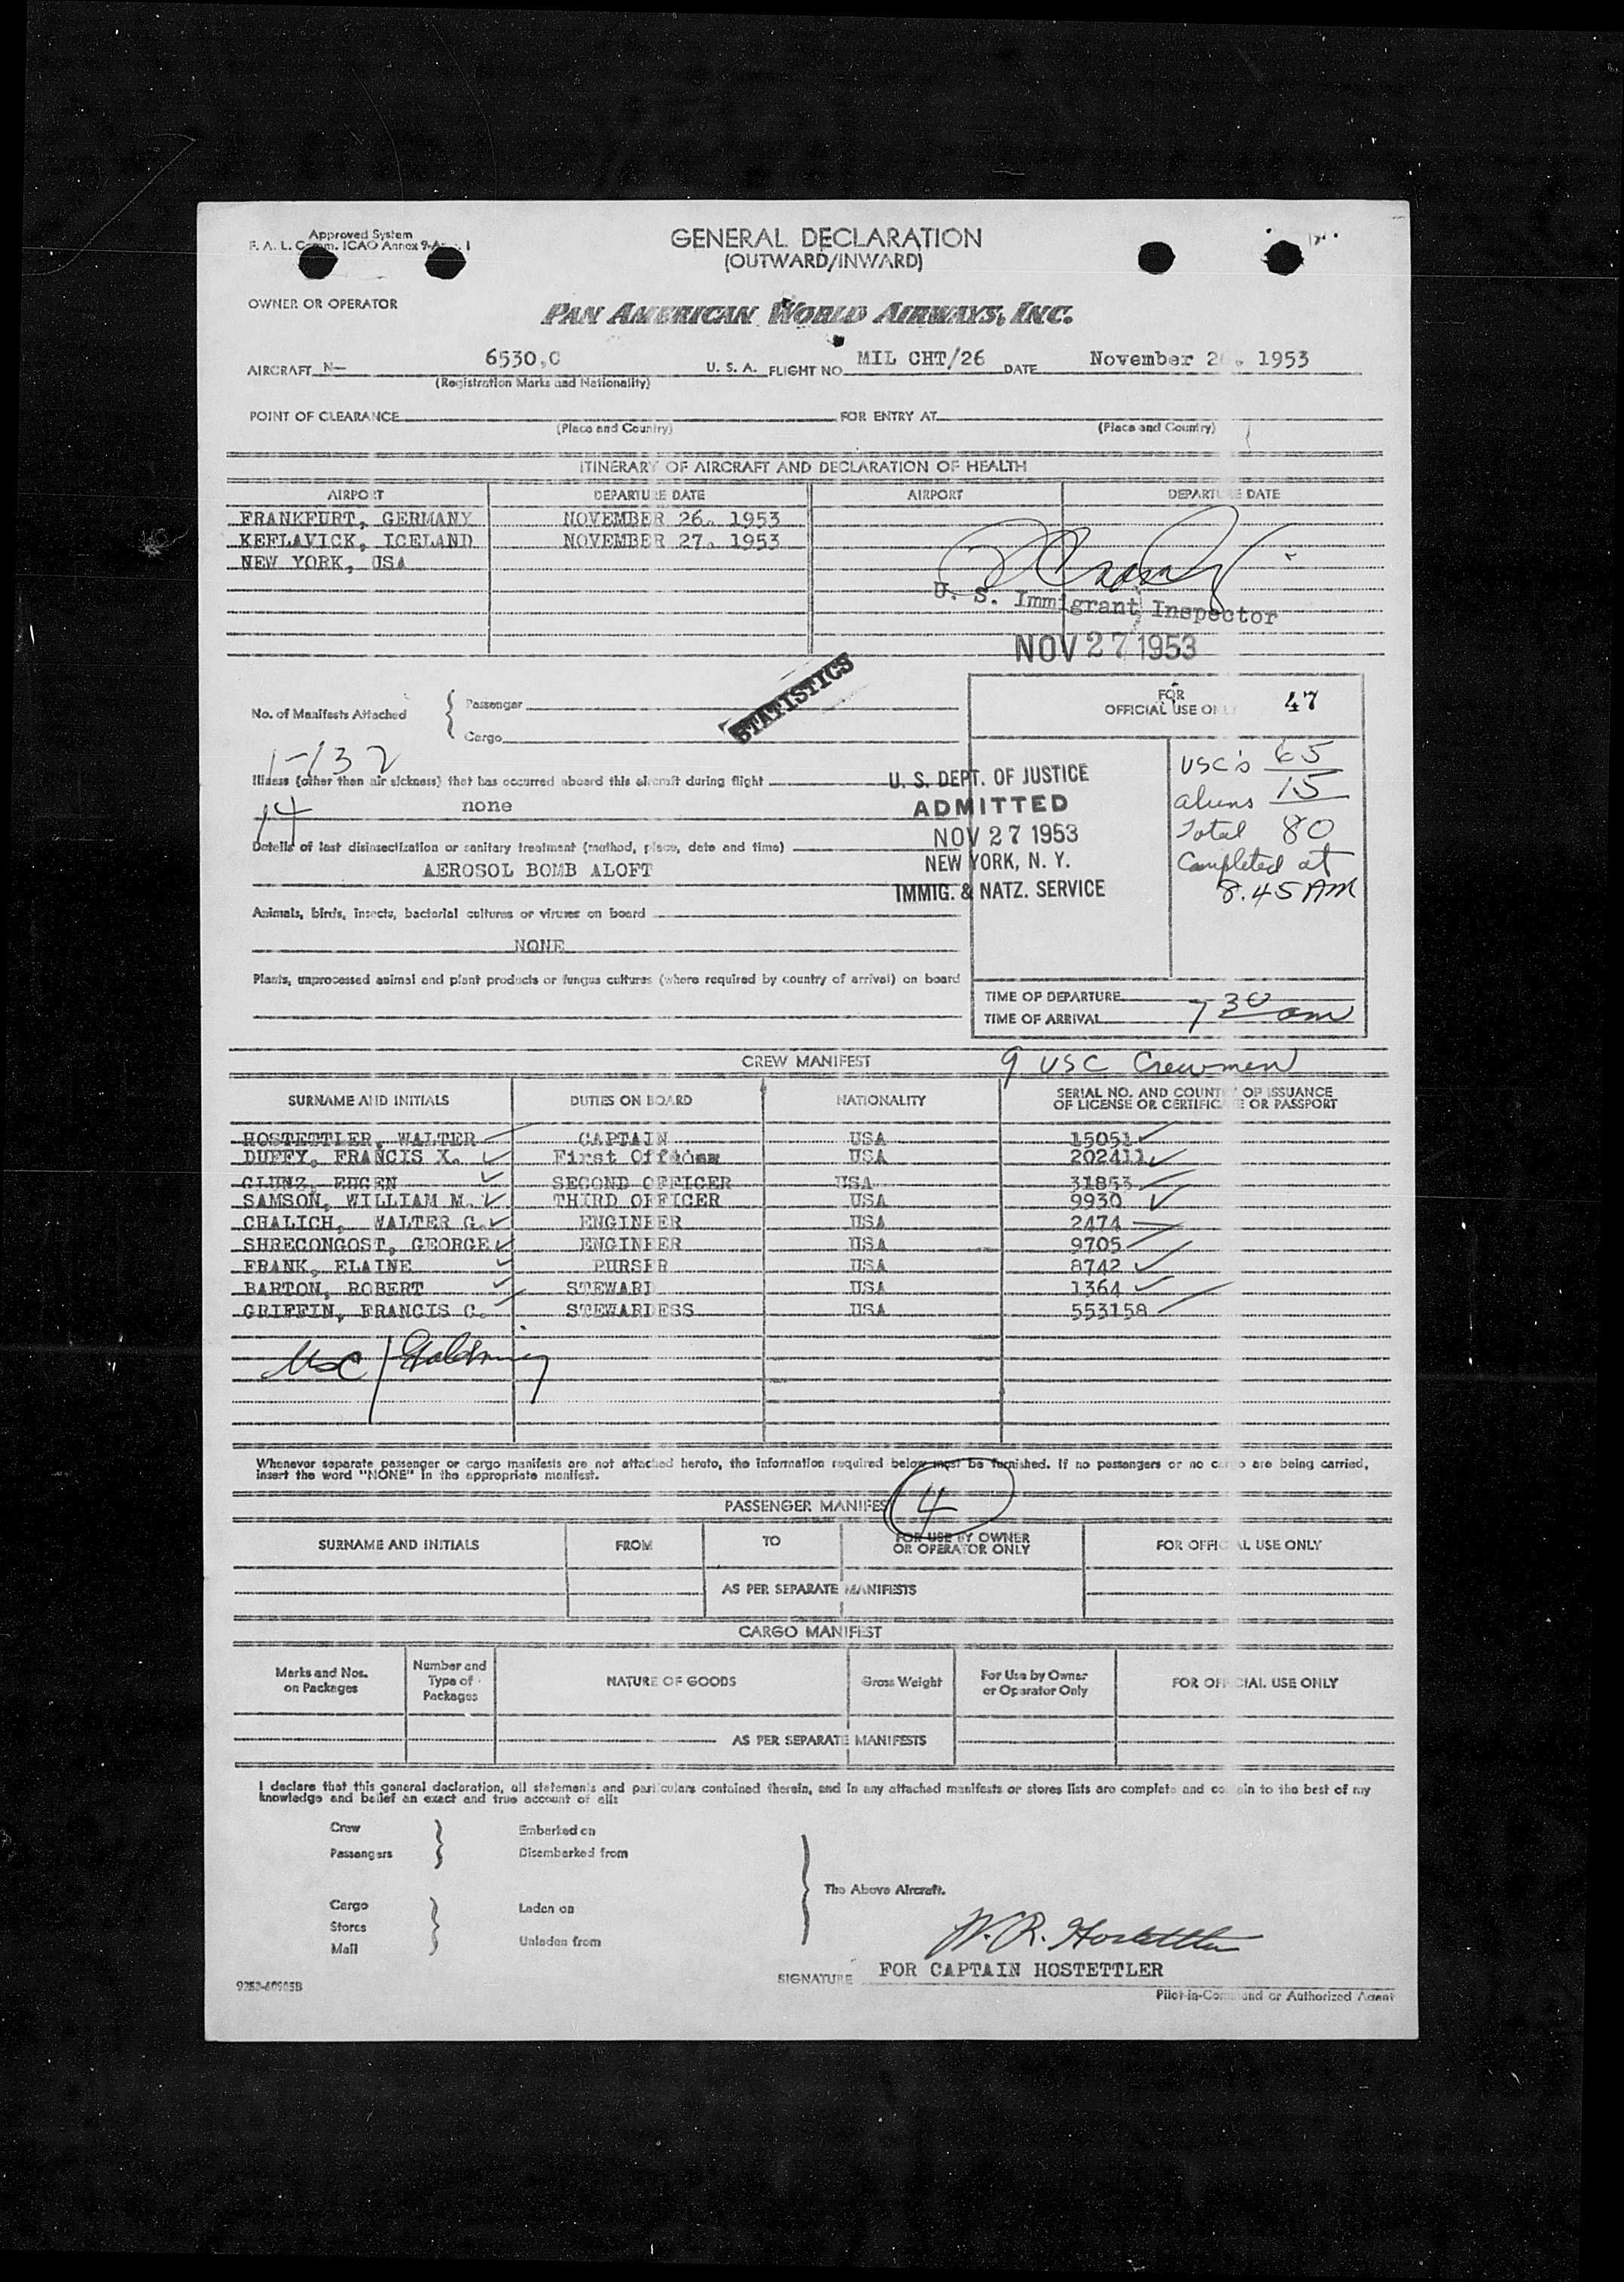 Approved System
F. A. L. Comm. ICAO Annex 9-App. 1
GENERAL DECLARATION
(OUTWARD/INWARD)
OWNER OR OPERATOR
PAN AMERICAN WORLD AIRWAYS, INC.
AIRCRAFT N— 6530,C U. S. A. FLIGHT NO MIL CHT/26 DATE November 2 , 1953
(Registration Marks and Nationality)
POINT OF CLEARANCE FOR ENTRY AT
(Place and Country) (Place and Country)
ITINERARY OF AIRCRAFT AND DECLARATION OF HEALTH
AIRPORT DEPARTURE DATE AIRPORT DEPARTURE DATE
FRANKFURT, GERMANY NOVEMBER 26, 1953
KEFLAVICK, ICELAND NOVEMBER 27, 1953
NEW YORK, USA
U. S. Immigrant Inspector
NOV 27 1953
STATISTICS
No. of Manifests Attached
Passenger
Cargo
1-132
FOR
OFFICIAL USE ONLY
47
Illness (other than air sickness) that has occurred aboard this aircraft during flight
14
none
U. S. DEPT. OF JUSTICE
ADMITTED
NOV 27 1953
NEW YORK, N. Y.
IMMIG. & NATZ. SERVICE
USC's 65
aliens 15
Total 80
Completed at
8.45 AM
Details of last disinsectization or sanitary treatment (method, place, date and time)
AEROSOL BOMB ALOFT
Animals, birds, insects, bacterial cultures or viruses on board
NONE
Plants, unprocessed animal and plant products or fungus cultures (where required by country of arrival) on board
TIME OF DEPARTURE
TIME OF ARRIVAL 7 30 am
CREW MANIFEST 9 USC Crewmen
SURNAME AND INITIALS DUTIES ON BOARD NATIONALITY SERIAL NO. AND COUNTRY OF ISSUANCE
OF LICENSE OR CERTIFICATE OR PASSPORT
HOSTETTLER, WALTER CAPTAIN USA 15051
DUFFY, FRANCIS X. First Officer USA 202411
GLUNZ, EUGEN SECOND OFFICER USA 31853
SAMSON, WILLIAM M. THIRD OFFICER USA 9930
CHALICH, WALTER G. ENGINEER USA 2474
SHRECONGOST, GEORGE ENGINEER USA 9705
FRANK, ELAINE PURSER USA 8742
BARTON, ROBERT STEWARD USA 1364
GRIFFIN, FRANCIS C. STEWARDESS USA 553158
USC
Whenever separate passenger or cargo manifests are not attached hereto, the information required below must be furnished. If no passengers or no cargo are being carried,
insert the word "NONE" in the appropriate manifest.
PASSENGER MANIFEST 4
SURNAME AND INITIALS FROM TO FOR USE BY OWNER
OR OPERATOR ONLY FOR OFFICIAL USE ONLY
AS PER SEPARATE MANIFESTS
CARGO MANIFEST
Marks and Nos.
on Packages
Number and
Type of
Packages
NATURE OF GOODS
Gross Weight
For Use by Owner
or Operator Only
FOR OFFICIAL USE ONLY
AS PER SEPARATE MANIFESTS
I declare that this general declaration, all statements and particulars contained therein, and in any attached manifests or stores lists are complete and contain to the best of my
knowledge and belief an exact and true account of all:
Crew
Passengers
Embarked on
Disembarked from
Cargo
Stores
Mail
Laden on
Unladen from
The Above Aircraft.
W. R. Hostettler
SIGNATURE FOR CAPTAIN HOSTETTLER
Pilot-in-Command or Authorized Agent